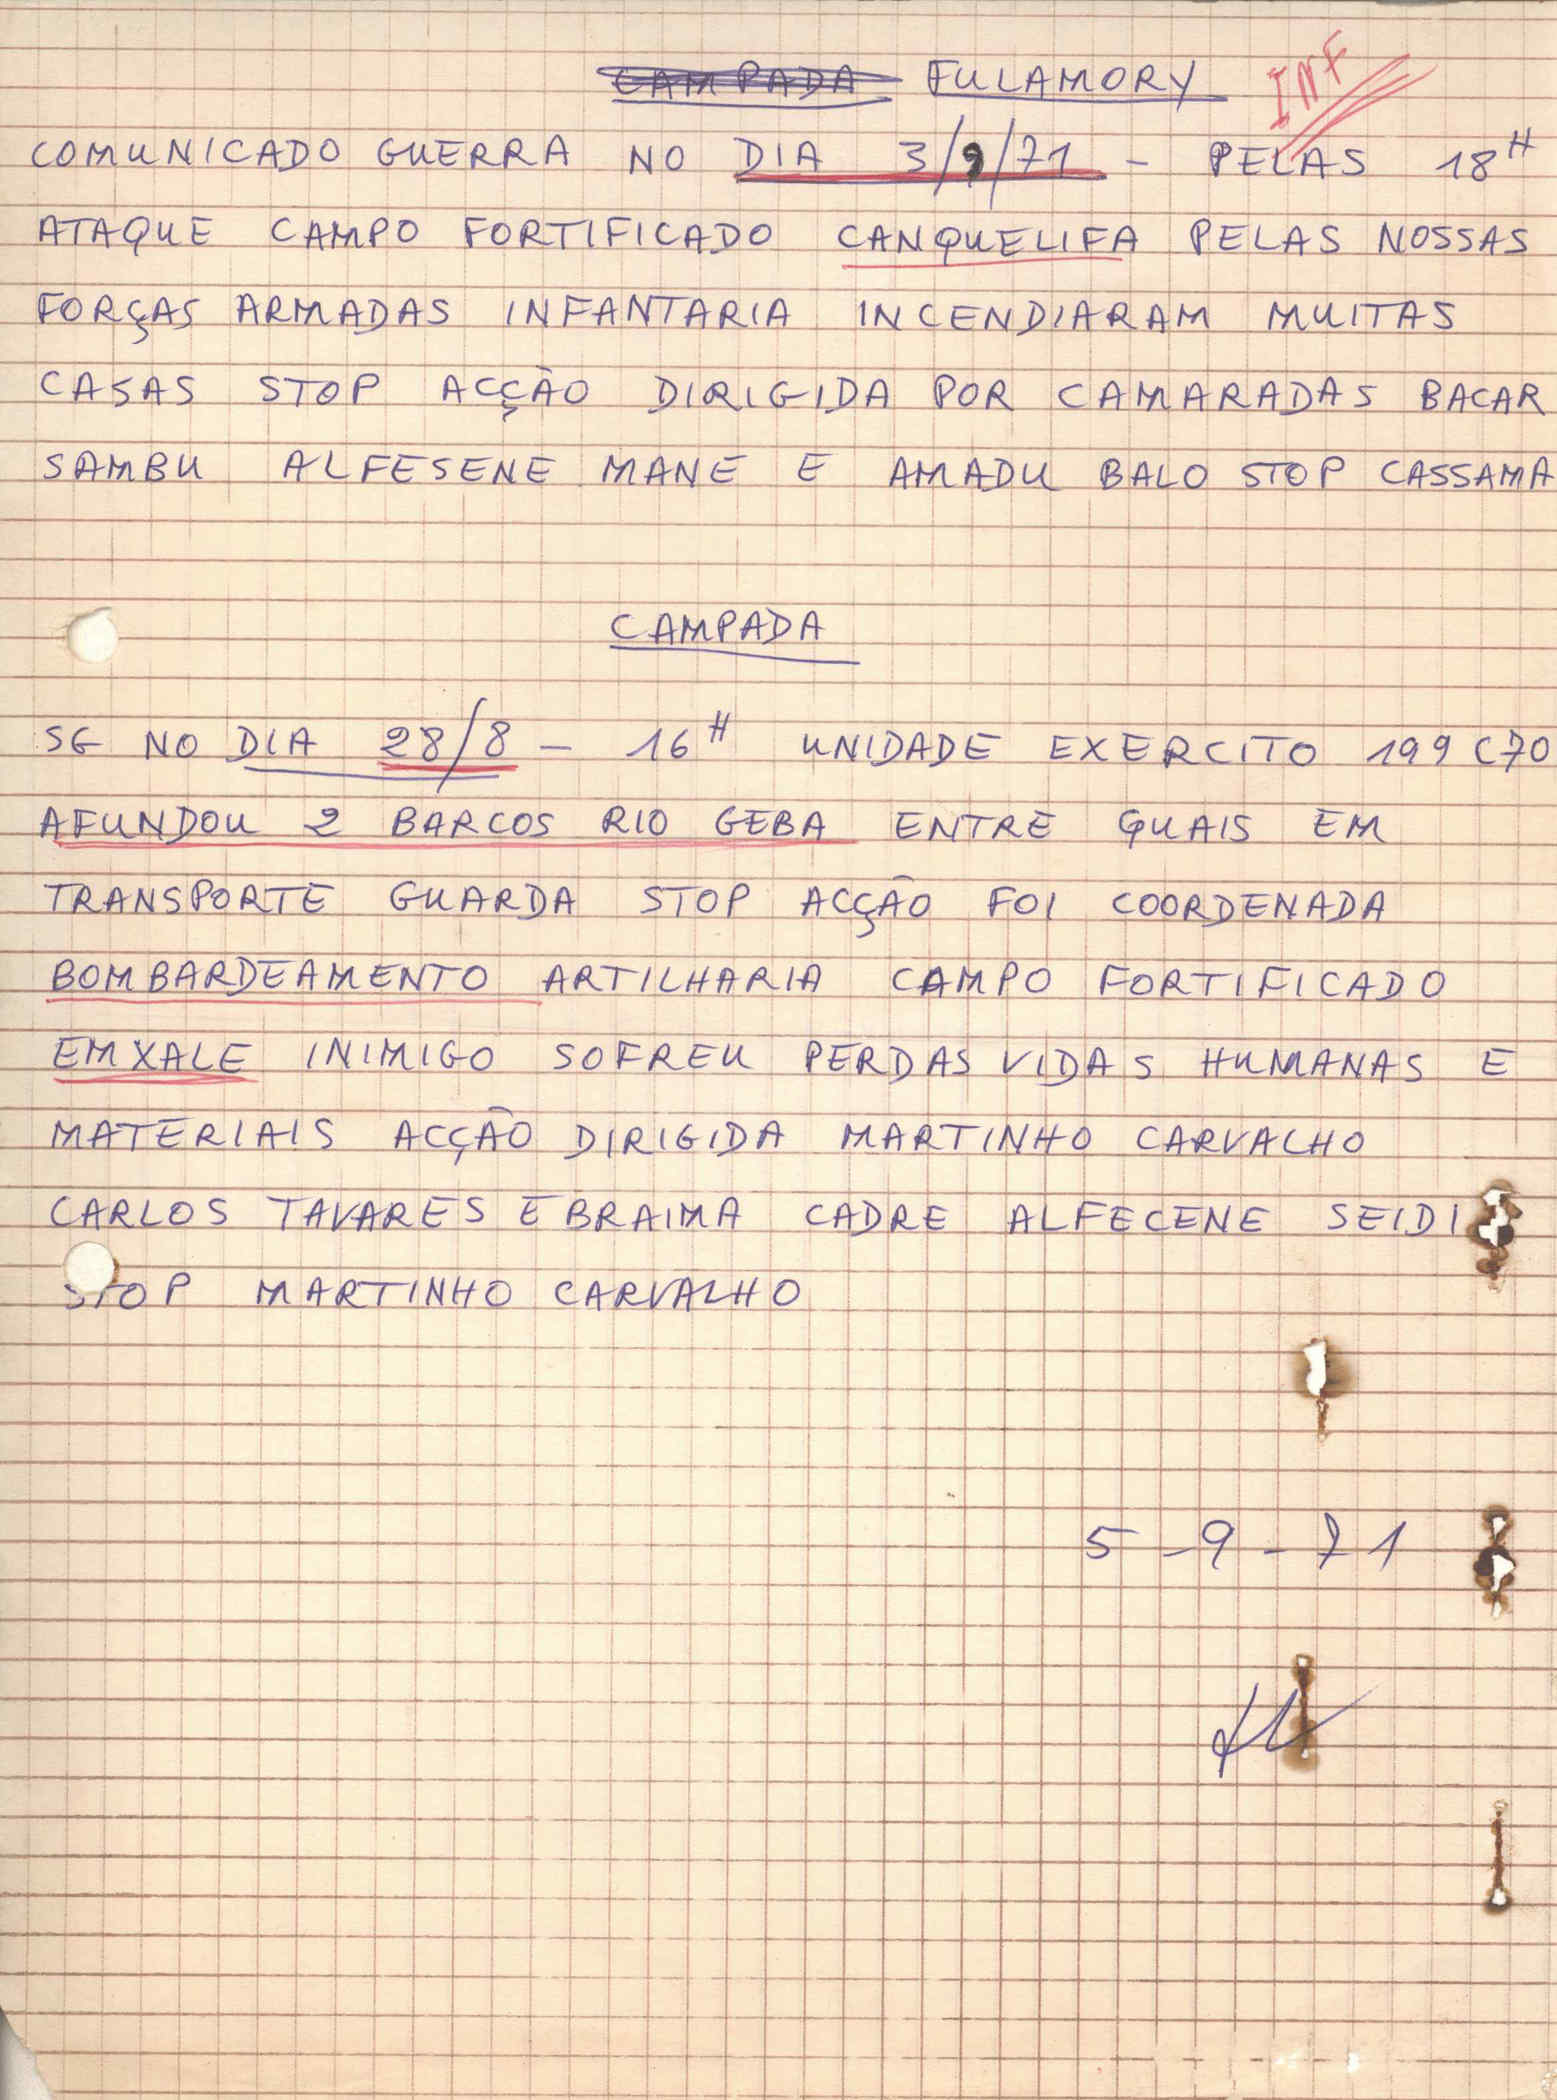 CAMPADA FULAMORY INF
COMUNICADO GUERRA NO DIA 3/9/71 - PELAS 18H
ATAQUE CAMPO FORTIFICADO CANQUELIFA PELAS NOSSAS
FORÇAS ARMADAS INFANTARIA INCENDIARAM MUITAS
CASAS STOP ACÇÃO DIRIGIDA POR CAMARADAS BACAR
SAMBU ALFESENE MANE E AMADU BALO STOP CASSAMA
CAMPADA
SG NO DIA 28/8 - 16H UNIDADE EXERCITO 199 C70
AFUNDOU 2 BARCOS RIO GEBA ENTRE QUAIS EM
TRANSPORTE GUARDA STOP ACÇÃO FOI COORDENADA
BOMBARDEAMENTO ARTILHARIA CAMPO FORTIFICADO
EMXALE INIMIGO SOFREU PERDAS VIDAS HUMANAS E
MATERIAIS ACÇÃO DIRIGIDA MARTINHO CARVALHO
CARLOS TAVARES EBRAIMA CADRE ALFECENE SEIDI
STOP MARTINHO CARVALHO
5-9-71